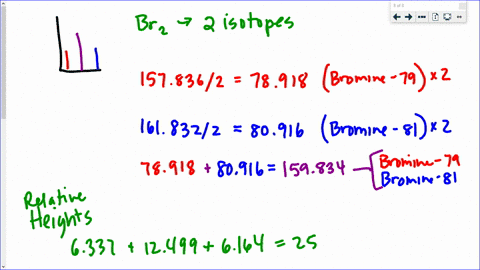 Br₂ → 2 isotopes
157.836/2 = 78.918 (Bromine-79) × 2
161.832/2 = 80.916 (Bromine-81) × 2
78.918 + 80.916 = 159.834
Bromine-79
Bromine-81
Relative
Heights
6.337 + 12.499 + 6.164 = 25